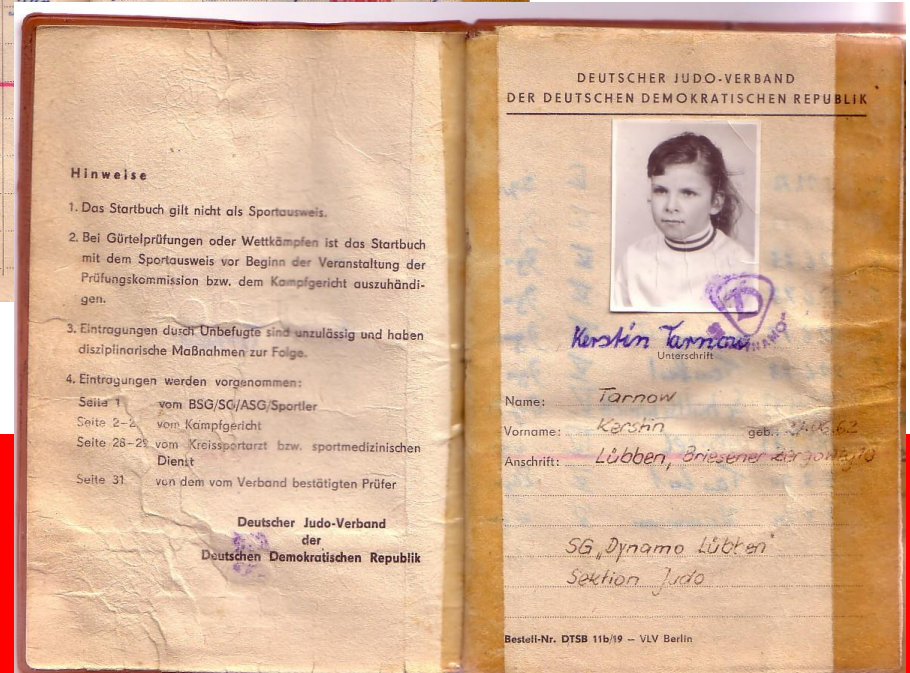 Hinweise
1. Das Startbuch gilt nicht als Sportausweis.
2. Bei Gürtelprüfungen oder Wettkämpfen ist das Startbuch
mit dem Sportausweis vor Beginn der Veranstaltung der
Prüfungskommission bzw. dem Kampfgericht auszuhändi-
gen.
3. Eintragungen durch Unbefugte sind unzulässig und haben
disziplinarische Maßnahmen zur Folge.
4. Eintragungen werden vorgenommen:
Seite 1 vom BSG/SG/ASG/Sportler
Seite vom Kampfgericht
Seite vom Kreissportarzt bzw. sportmedizinischen
Dienst
Seite 31 von dem vom Verband bestätigten Prüfer
Deutscher Judo-Verband
der
Deutschen Demokratischen Republik
DEUTSCHER JUDO-VERBAND
DER DEUTSCHEN DEMOKRATISCHEN REPUBLIK
DYNAMO
Kerstin Tarnow
Unterschrift
Name: Tarnow
Vorname: Kerstin geb.:
Anschrift: Lübben, Briesener
SG "Dynamo Lübben"
Sektion Judo
Bestell-Nr. DTSB 11b/19 – VLV Berlin